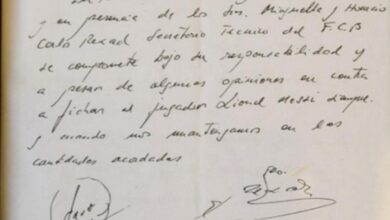 y en presencia de los Srs. Minguella y Horacio
Carlo Rexach Secretario Tecnico del F.C.B
se compromete bajo su responsabilidad y
a pesar de algunas opiniones en contra
a fichar al jugador Lionel Messi siempre
y cuando nos mantengamos en las
cantidades acordadas